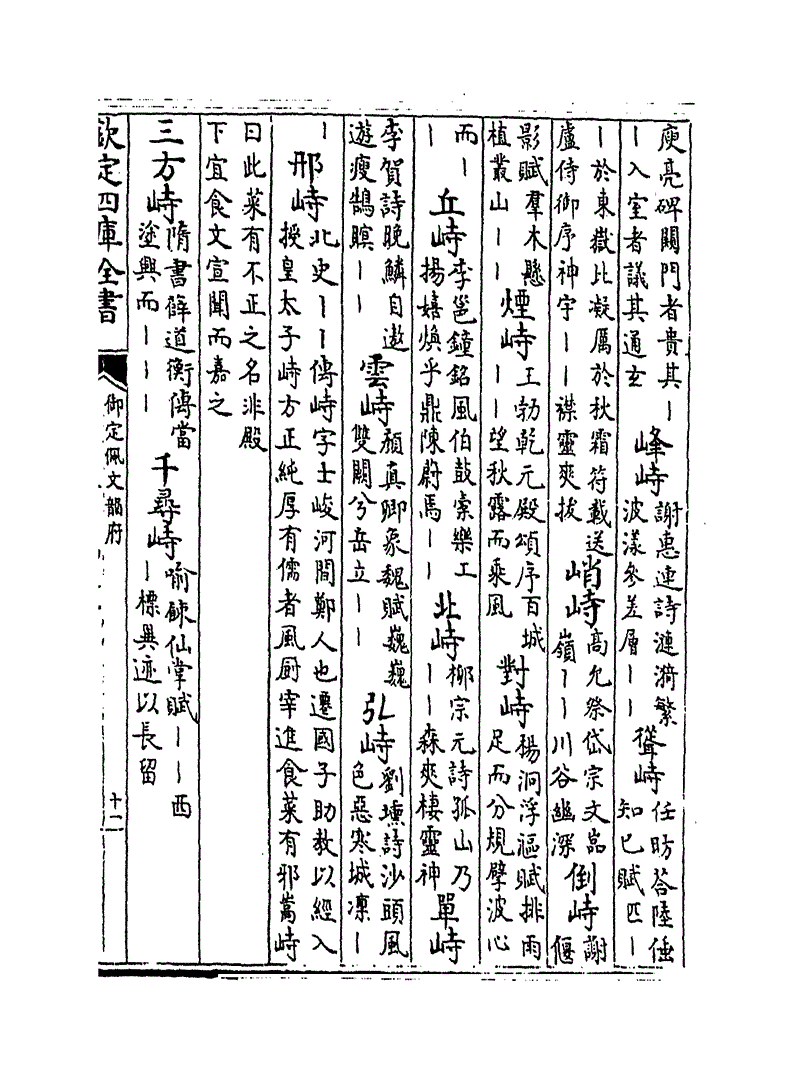 庾亮碑闢門者貴其｜｜入室者議其通玄 峰峙 謝惠連詩漣漪繁波漾參差層｜｜ 聳峙 任昉荅陸倕知己賦匹｜
｜於東嶽比凝厲於秋霜符載送盧侍御序神宇｜｜襟靈爽拔 峭峙 高允祭岱宗文嵓嶺｜｜川谷幽深 倒峙 謝偃
影賦羣木懸植叢山｜｜ 煙峙 王勃乾元殿頌序百城｜｜望秋露而乘風 對峙 楊泂浮漚賦排雨足而分規擘波心
而｜｜ 丘峙 李邕鐘銘風伯鼓橐樂工揚嬉煥乎鼎陳蔚焉｜｜ 北峙 柳宗元詩孤山乃｜｜森爽棲靈神 單峙
李賀詩晚鱗自遨遊瘦鵠暝｜｜ 雲峙 顏真卿象魏賦巍巍雙闕兮岳立｜｜ 弘峙 劉壎詩沙頭風色惡寒城凛｜
｜ 邢峙 北史｜｜傳峙字士峻河間鄭人也遷國子助教以經入授皇太子峙方正純厚有儒者風厨宰進食菜有邪蒿峙
曰此菜有不正之名非殿下宜食文宣聞而嘉之
三方峙 隋書薛道衡傳當塗興而｜｜｜ 千尋峙 喻餗仙掌賦｜｜西｜標異迹以長留
欽定四庫全書 御定佩文韻府 十二